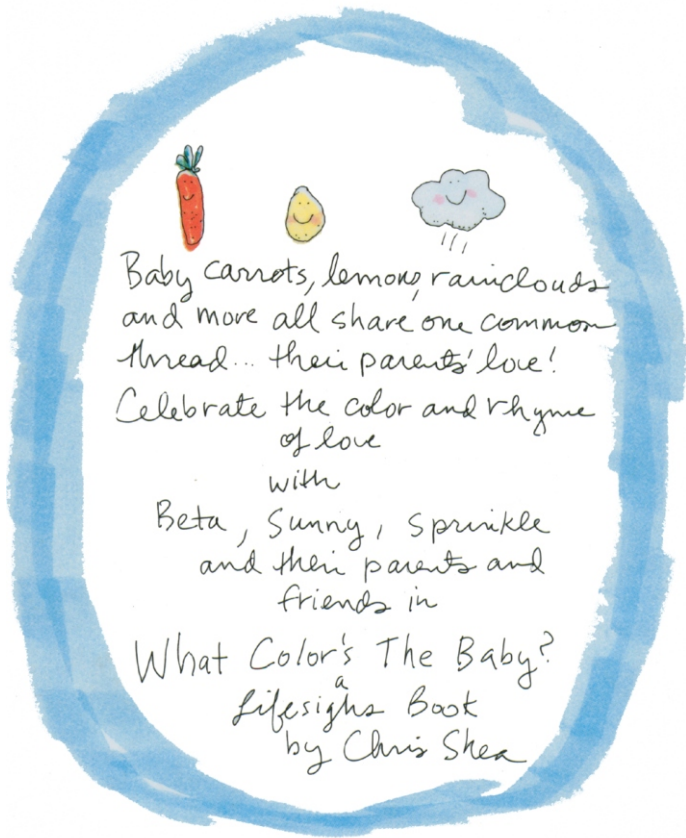 Baby carrots, lemons, rainclouds
and more all share one common
thread... their parents' love!
Celebrate the color and rhyme
of love
with
Beta, Sunny, Sprinkle
and their parents and
friends in
What Color's The Baby?
a
Lifesighs Book
by Chris Shea